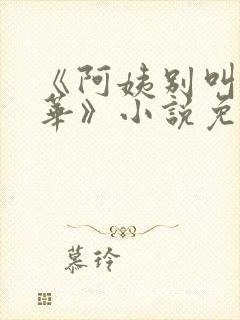 《阿姨别叫
华》小说免
慕玲